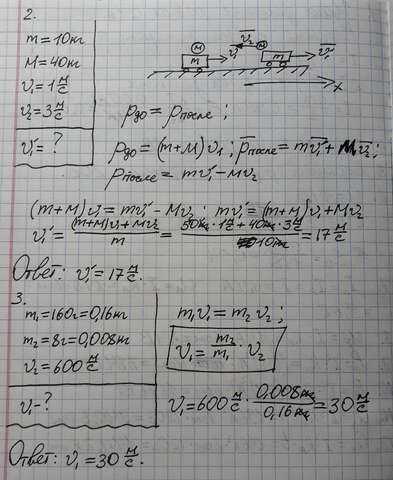 2.
m = 10кг
M = 40кг
v₁ = 1 м/с
v₂ = 3 м/с
v₁' = ?
M v₂ M
m v₁ m v₁'
x
pдо = pпосле ;
pдо = (m+M) v₁ ; p̅после = m v̅₁' + M v̅₂ ;
pпосле = mv₁' - Mv₂
(m+M) v₁ = mv₁' - Mv₂ ; mv₁' = (m+M) v₁ + Mv₂
v₁' = (m+M)v₁ + Mv₂ / m = 50кг · 1 м/с + 40кг · 3 м/с / 10кг = 17 м/с
Ответ: v₁' = 17 м/с.
3.
m₁ = 160г = 0,16кг
m₂ = 8г = 0,008кг
v₂ = 600 м/с
v₁ - ?
m₁v₁ = m₂v₂ ;
v₁ = m₂/m₁ · v₂
v₁ = 600 м/с · 0,008кг / 0,16кг = 30 м/с
Ответ: v₁ = 30 м/с.